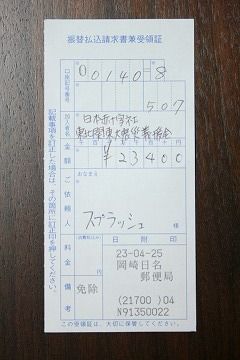 振替払込請求書兼受領証
口座記号番号
00140-8
507
加入者名
日本赤十字社
東北関東大震災義援金
金額
¥23400
ご依頼人
おなまえ
スプラッシュ
様
料金
(消費税込み)
日附印
23-04-25
岡崎日名
郵便局
備考
免除
(21700)04
N91350022
記載事項を訂正した場合は、その箇所に訂正印を押してください。
この受領証は、大切に保管してください。